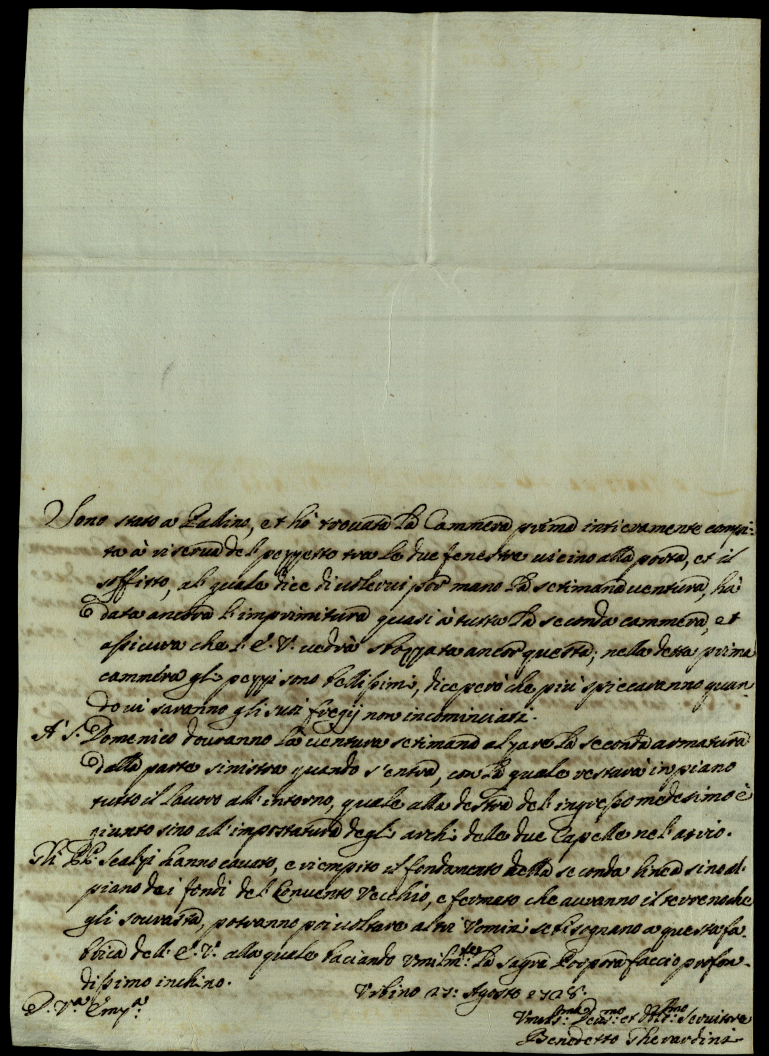 Sono stato a Pallino, et hò trovata la Cammera prima intieramente compi-
ta à riserva del pezzetto tra le due fenestre vicino alla porta, et il
soffitto, al quale dice di volervi por mano la setimana ventura, hà
data ancora l'imprimitura quasi à tutta la seconda cammera, et
assicura che l'E.V. vedrà sbozzata ancor questa; nella detta prima
cammera gli pezzi sono bellissimi, dice però che più spiccaranno quan-
do vi saranno gli suoi fregij non incominciati.
A' S. Domenico dovranno la ventura setimana alzare la seconda armatura
dalla parte sinistra quando s'entra, con la quale restarà in piano
tutto il lavoro all'intorno, quale alla destra del ingresso medesimo è
giunto sino all'impostatura degli archi delle due Capelle nel atrio.
Gli PP. Scalzi hanno cavato, e riempito il fondamento della seconda linea sino al
piano dei fondi del Convento Vecchio, e fermato che avranno il terreno che
gli sovrasta, potranno altri Uomini se bisognano a questa fa-
brica dell'E.V. alla quale baciando Umilm.te la Sagra Porpora faccio profon-
dissimo inchino.
Urbino 27: Agosto 1728.
D. V.a Em.a
Umiliss.mo Dev.mo et Obl.mo Servitore
Benedetto Gherardini